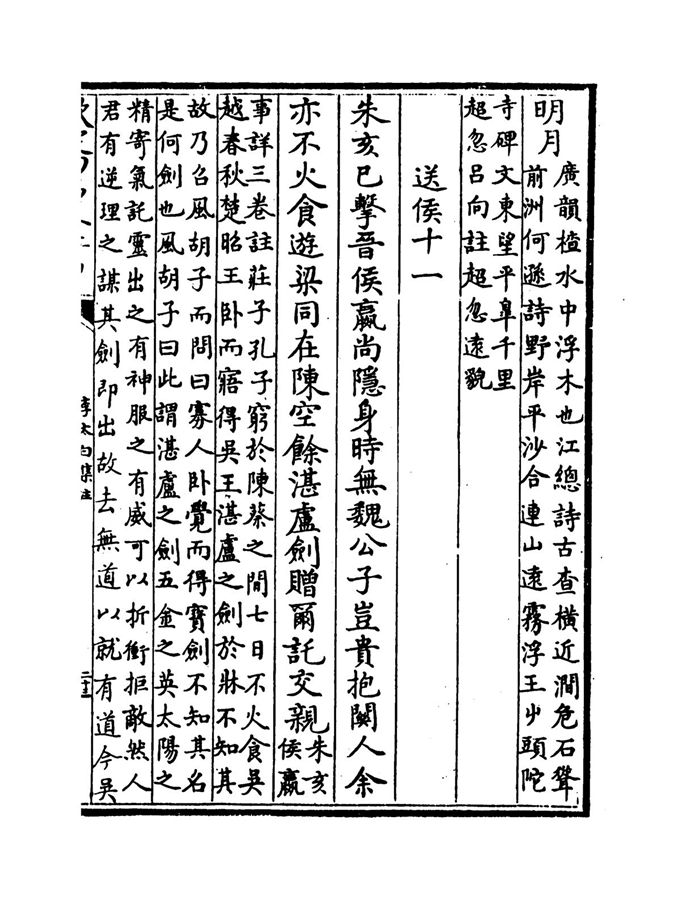 明月
廣韻楂水中浮木也江總詩古查橫近澗危石聳
前洲何遜詩野岸平沙合連山遠霧浮王屮頭陀
寺碑文東望平皐千里
超忽吕向註超忽遠貌
送侯十一
朱亥已擊晉侯嬴尚隱身時無魏公子豈貴抱闗人余
亦不火食遊梁同在陳空餘湛盧劍贈爾託交親
朱亥
侯嬴
事詳三卷註莊子孔子窮於陳蔡之間七日不火食吳
越春秋楚昭王卧而寤得吳王湛盧之劍於牀不知其
故乃召風胡子而問曰寡人卧覺而得寶劍不知其名
是何劍也風胡子曰此謂湛盧之劍五金之英太陽之
精寄氣託靈出之有神服之有威可以折衝拒敵然人
君有逆理之謀其劍即出故去無道以就有道今吳
李太白集注
二十三